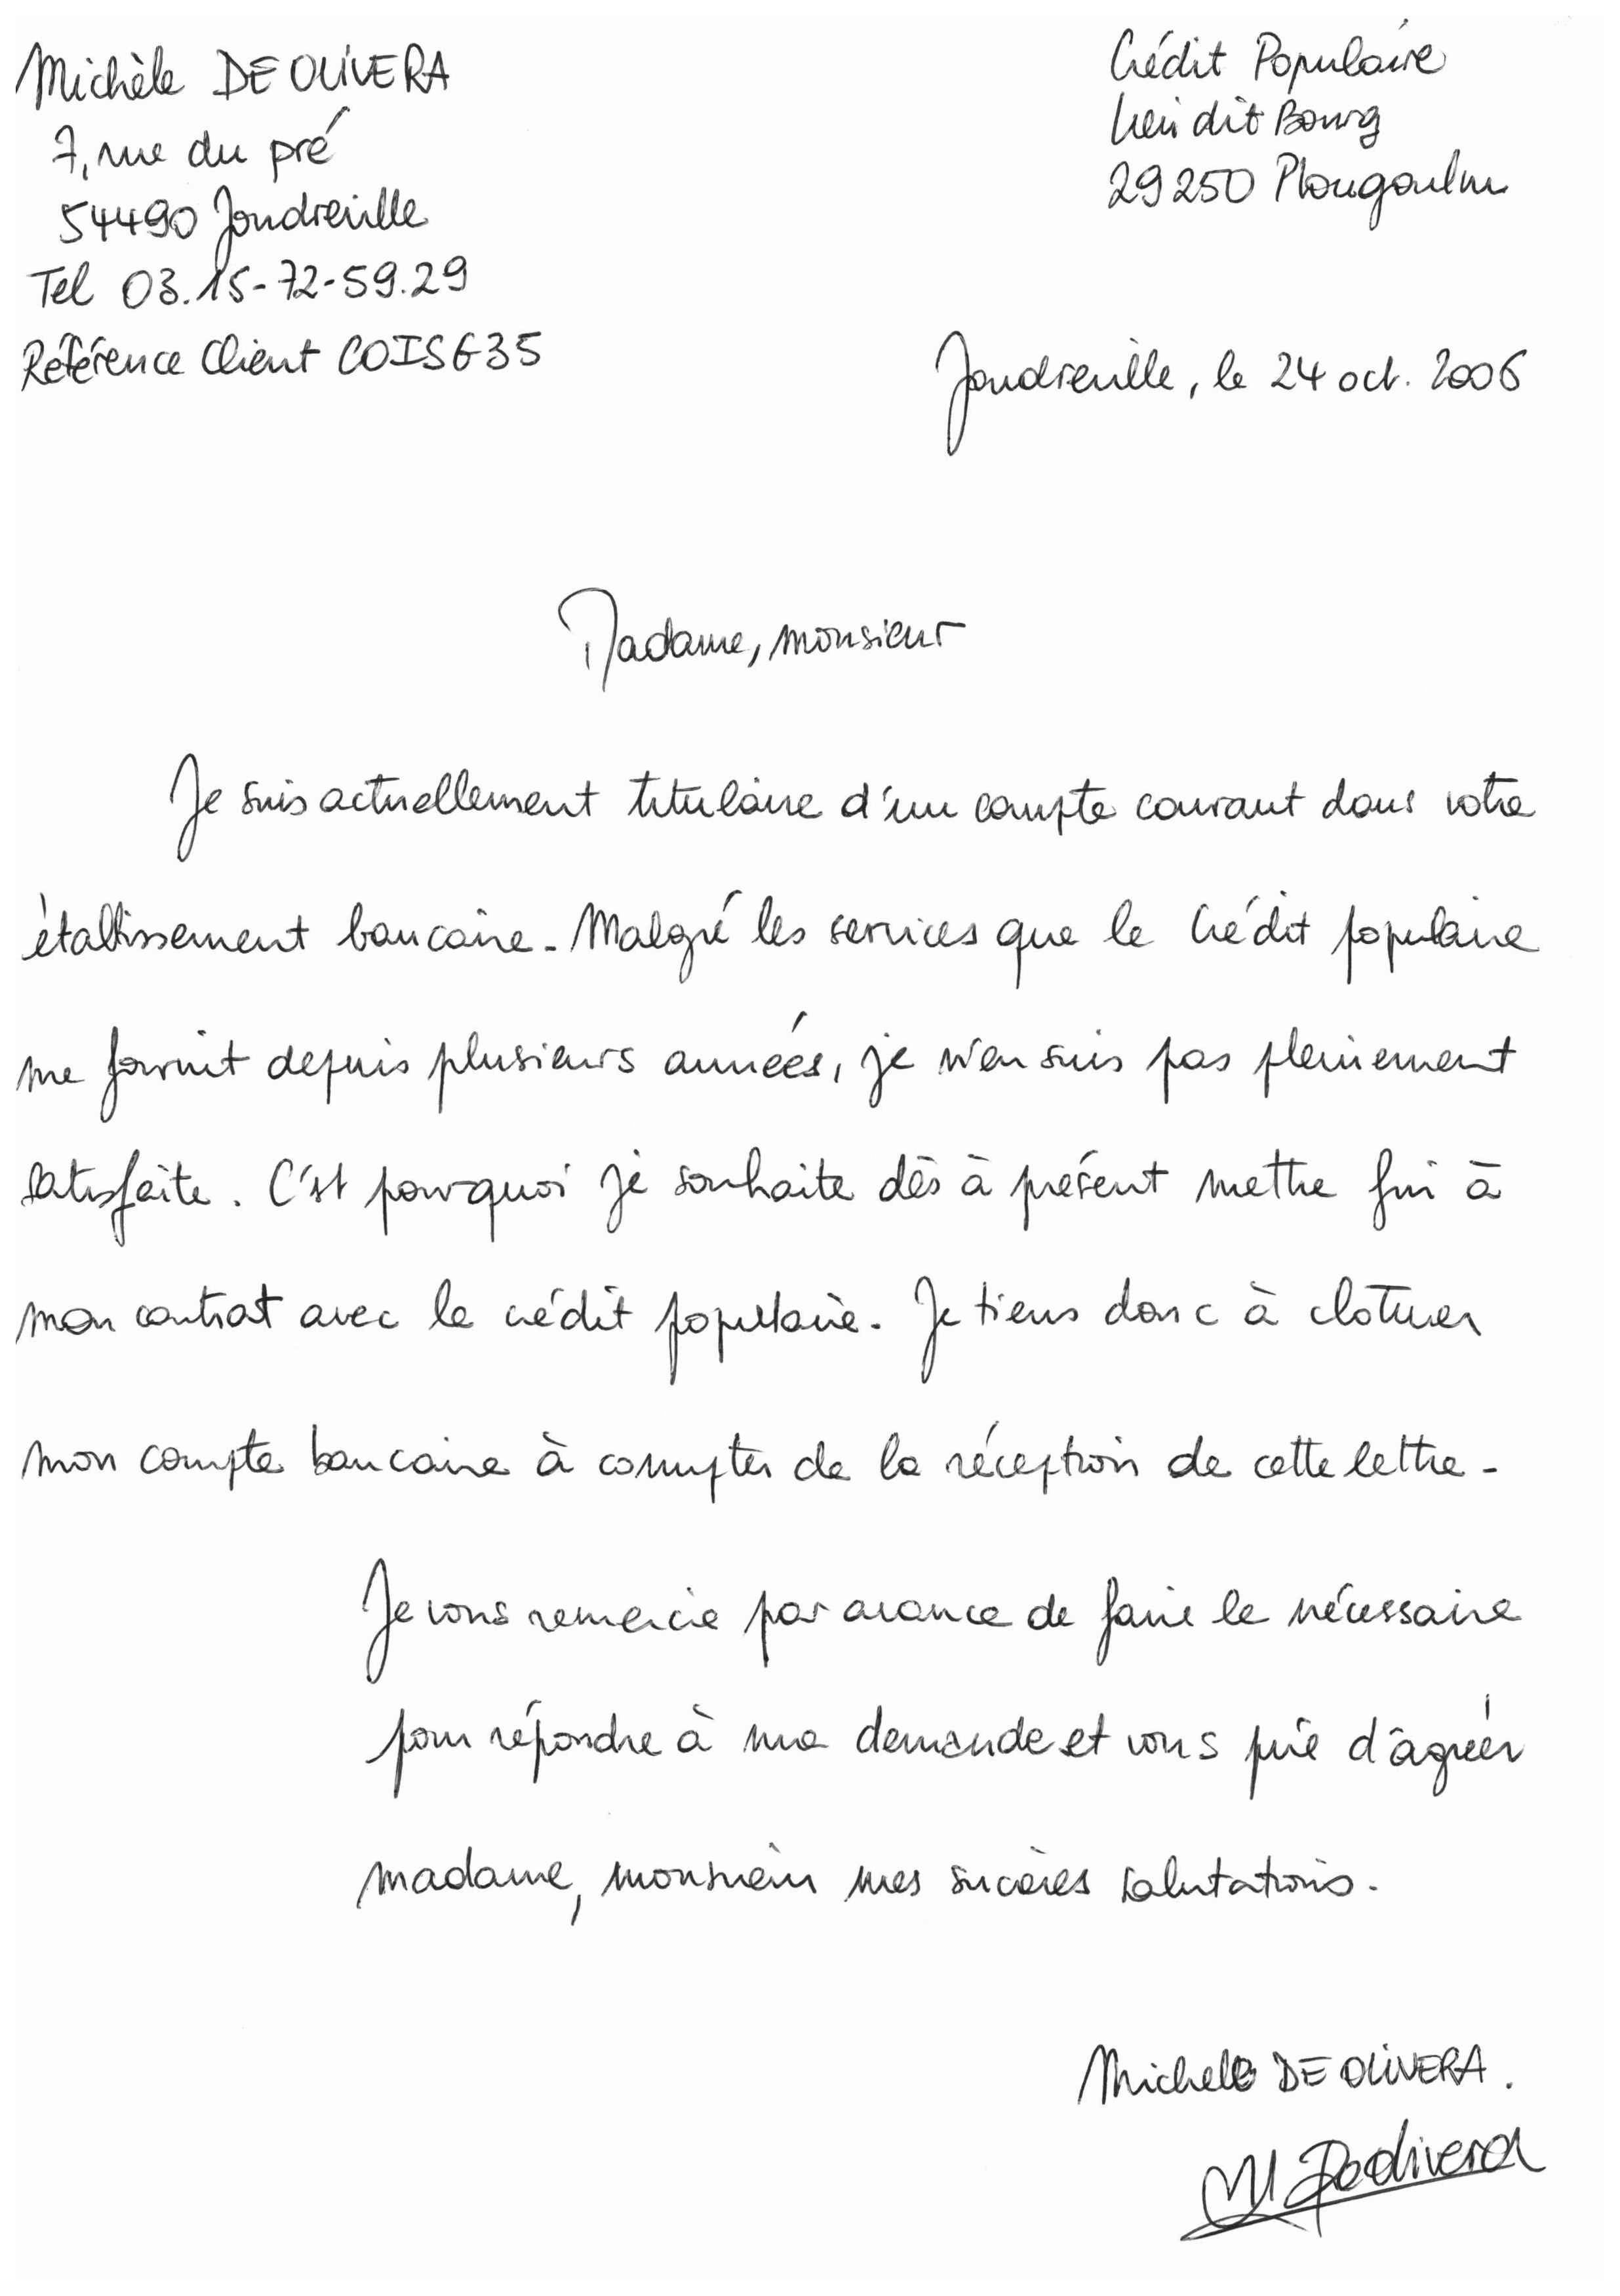 Michèle DE OLIVERA
7, rue du pré
54490 Joudreville
Tel 03.15-72-59.29
Référence Client COISG35
Crédit Populaire
Lieu dit Bourg
29250 Plougoulm
Joudreville, le 24 oct. 2006
Madame, monsieur
Je suis actuellement titulaire d'un compte courant dans votre
établissement bancaire. Malgré les services que le Crédit populaire
me fournit depuis plusieurs années, je n'en suis pas pleinement
satisfaite. C'est pourquoi je souhaite dès à présent mettre fin à
mon contrat avec le crédit populaire. Je tiens donc à cloturer
mon compte bancaire à compter de la réception de cette lettre.
Je vous remercie par avance de faire le nécessaire
pour répondre à ma demande et vous prie d'agréer
madame, monsieur mes sincères salutations.
Michele DE OLIVERA.
M Deolivera